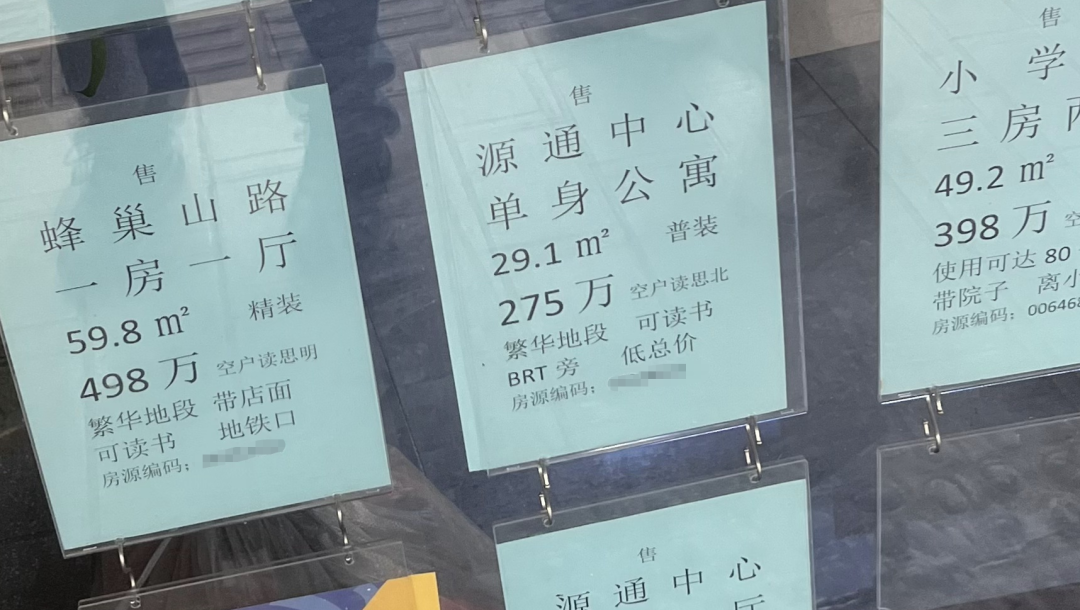 售
蜂巢山路
一房一厅
59.8 m² 精装
498 万 空户读思明
繁华地段 带店面
可读书 地铁口
房源编码:
售
源通中心
单身公寓
29.1 m² 普装
275 万 空户读思北
繁华地段 可读书
BRT 旁 低总价
房源编码:
售
小学
三房
49.2 m²
398 万
使用可达 80
带院子 离小
房源编码: 00646
售
源通中心
厅